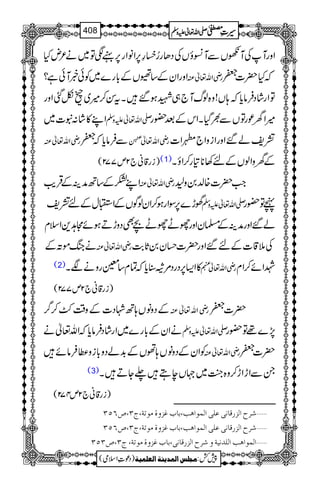 سیرتِ مصطفیٰ صلی اللہ تعالیٰ علیہ وسلم 408
اور آپ کی آنکھوں سے آنسوؤں کی دھار رخسار پر انوار پر بہنے لگی تو میں نے عرض کیا
کہ کیا حضرت جعفر رضی اللہ تعالیٰ عنہ اور ان کے ساتھیوں کے بارے میں کوئی خبر آئی ہے؟
تو ارشاد فرمایا کہ ہاں! وہ لوگ آج ہی شہید ہو گئے ہیں۔ یہ سن کر میری چیخ نکل گئی اور
میرا گھر عورتوں سے بھر گیا۔ اس کے بعد حضور صلی اللہ تعالیٰ علیہ وسلم اپنے کاشانۂ نبوت میں
تشریف لے گئے اور ازواجِ مطہرات رضی اللہ تعالیٰ عنہن سے فرمایا کہ جعفر رضی اللہ تعالیٰ عنہ
کے گھر والوں کے لئے کھانا تیار کراؤ۔ (1) (زرقانی ج۲ ص ۲۷۷)
جب حضرت خالد بن ولید رضی اللہ تعالیٰ عنہ اپنے لشکر کے ساتھ مدینہ کے قریب
پہنچے تو حضور صلی اللہ تعالیٰ علیہ وسلم گھوڑے پر سوار ہو کر ان لوگوں کے استقبال کے لئے تشریف
لے گئے اور مدینہ کے مسلمان اور چھوٹے چھوٹے بچے بھی دوڑتے ہوئے مجاہدین اسلام
کی ملاقات کے لئے گئے اور حضرت حسان بن ثابت رضی اللہ تعالیٰ عنہ نے جنگ موتہ کے
شہدائے کرام رضی اللہ تعالیٰ عنہم کا ایسا پر درد مرثیہ سنایا کہ تمام سامعین رونے لگے۔ (2)
(زرقانی ج۲ ص ۲۷۷)
حضرت جعفر رضی اللہ تعالیٰ عنہ کے دونوں ہاتھ شہادت کے وقت کٹ کر گر
پڑے تھے تو حضور صلی اللہ تعالیٰ علیہ وسلم نے ان کے بارے میں ارشاد فرمایا کہ اللہ تعالیٰ نے
حضرت جعفر رضی اللہ تعالیٰ عنہ کو ان کے دونوں ہاتھوں کے بدلے دو بازو عطا فرمائے ہیں
جن سے اڑ اڑ کر وہ جنت میں جہاں چاہتے ہیں چلے جاتے ہیں۔ (3)
(زرقانی ج۲ ص ۲۷۴)
شرح الزرقانی علی المواھب،باب غزوۃ موتۃ،ج۳،ص۳۵۶
شرح الزرقانی علی المواھب،باب غزوۃ موتۃ،ج۳،ص۳۵۶
المواھب اللدنیۃ و شرح الزرقانی،باب غزوۃ موتۃ، ج۳،ص۳۵۳
پیش کش: مجلس المدینۃ العلمیۃ (دعوتِ اسلامی)